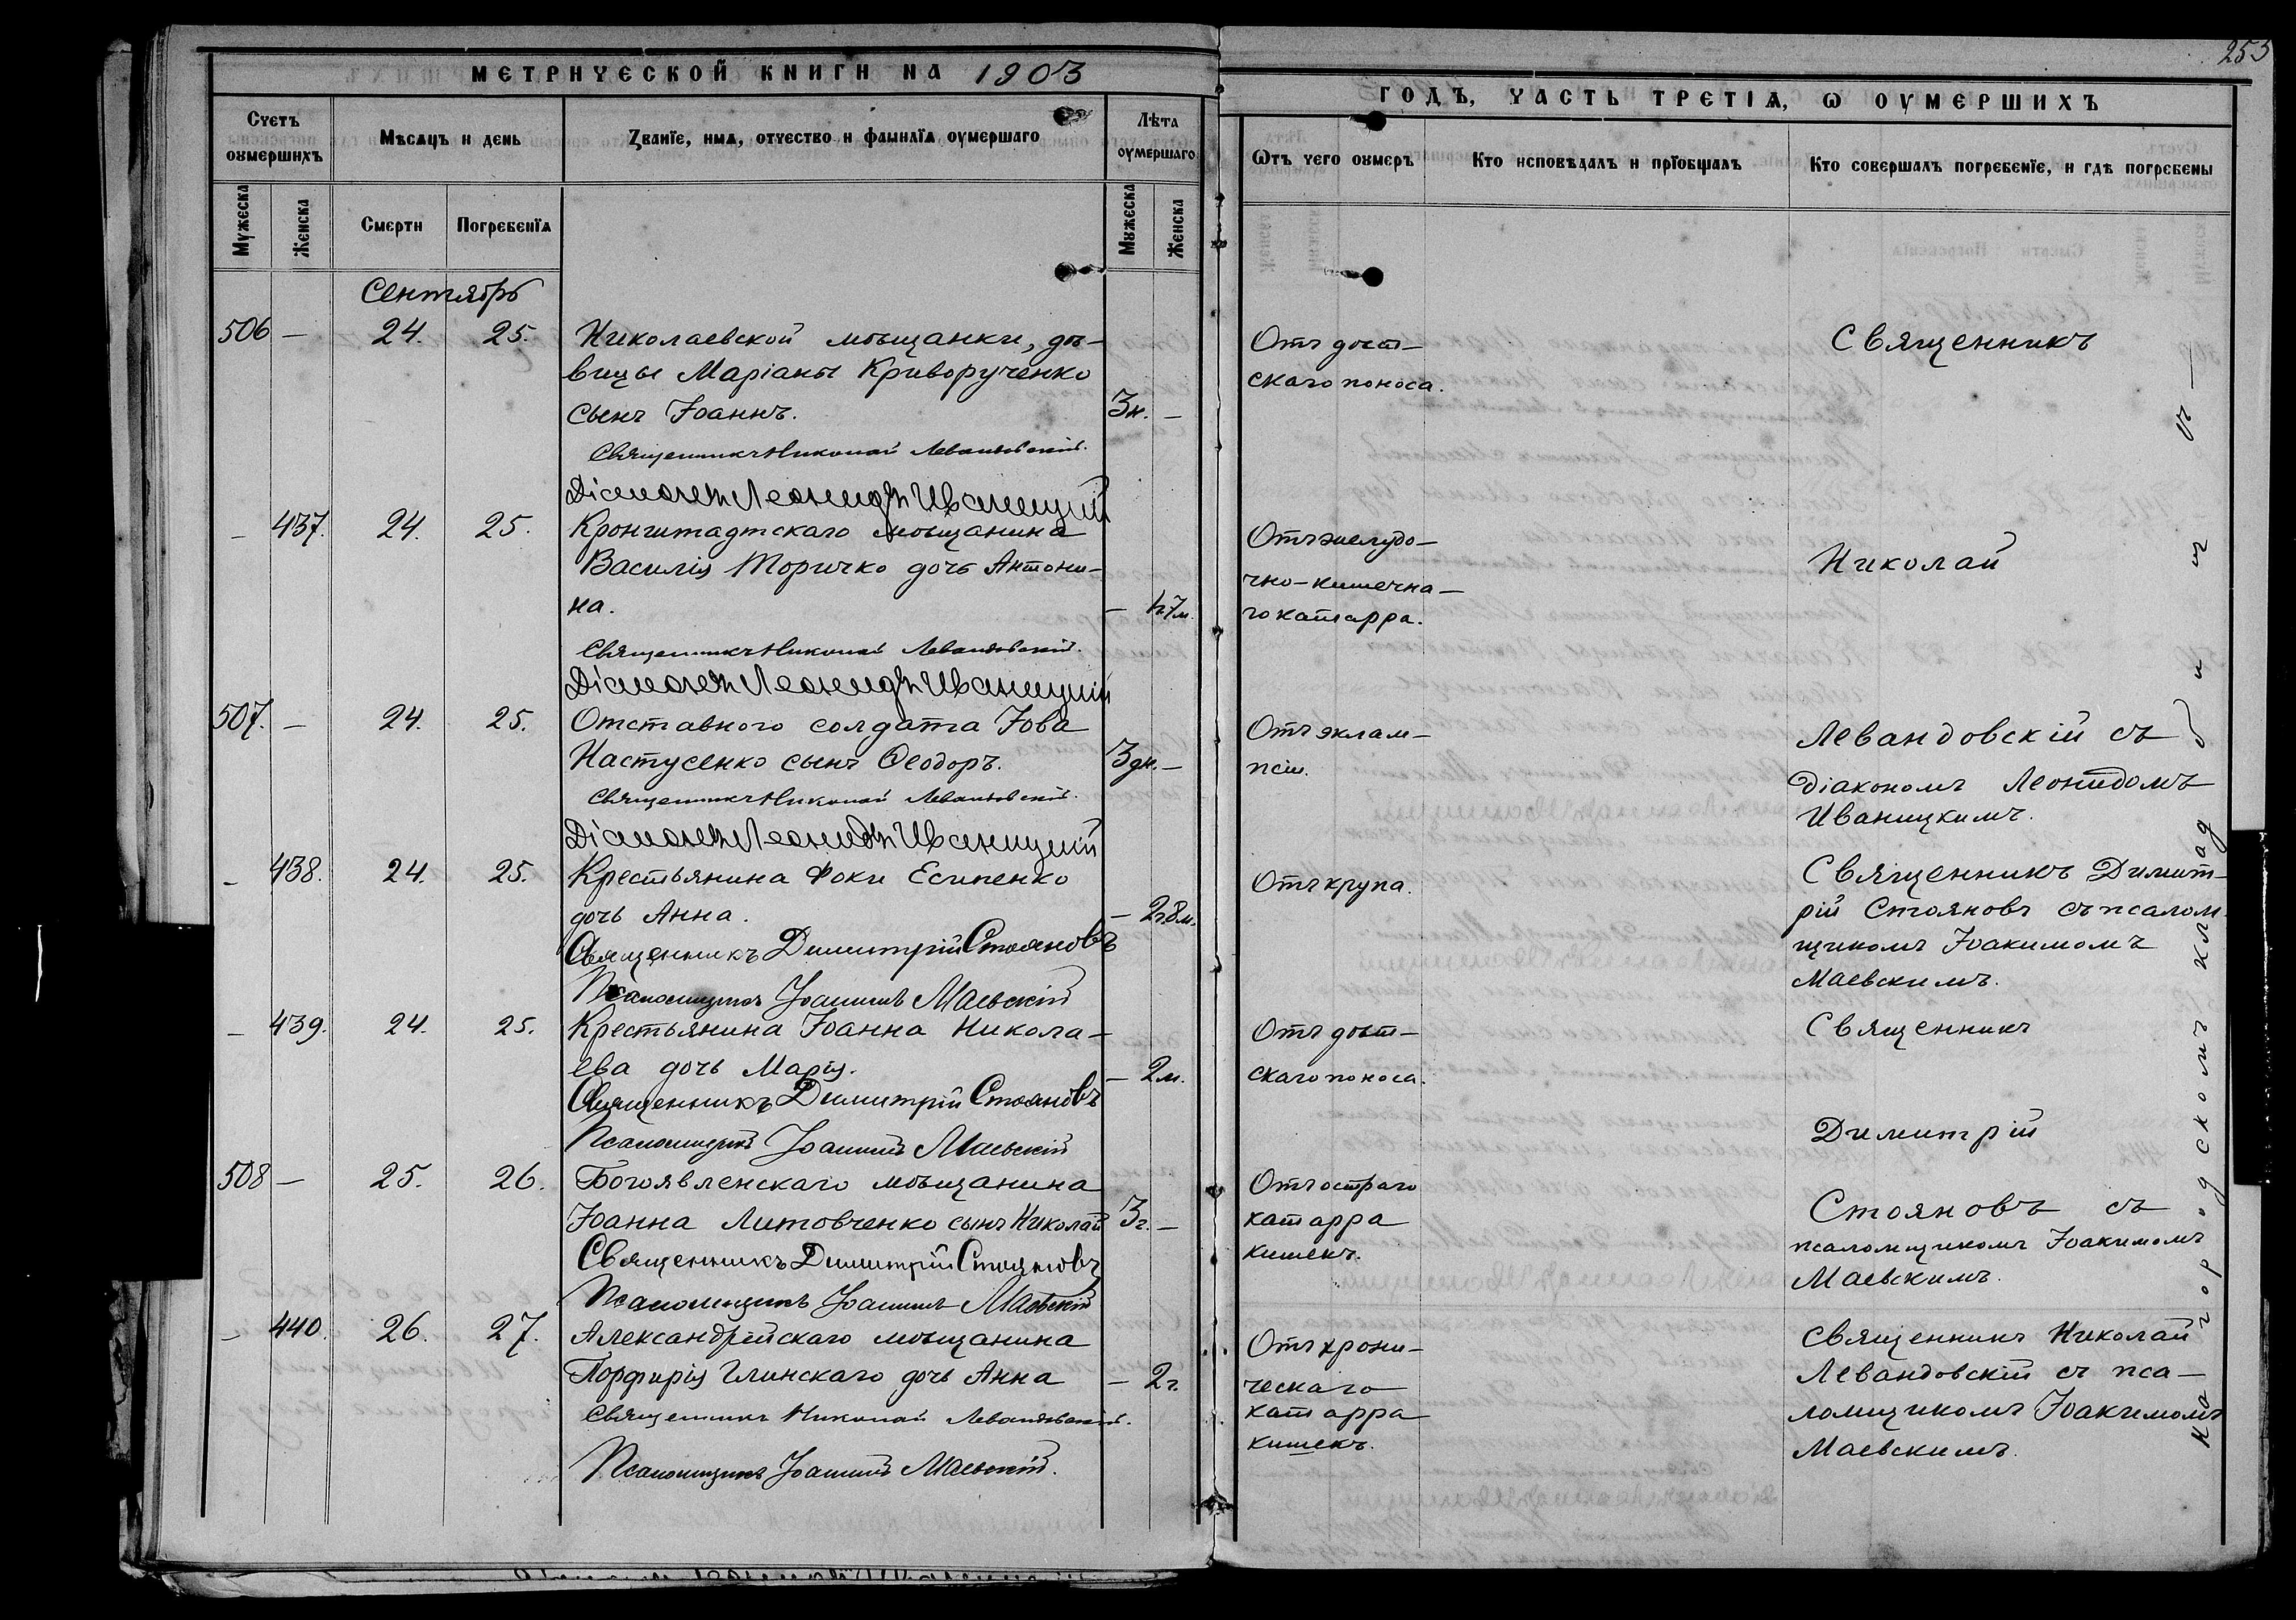 МЕТРИЧЕСКОЙ КНИГИ НА 1903
Счетъ оумершихъ
Мѣсяцъ и день
Званїе, имя, отчество и фамилїя оумершаго
Лѣта оумершаго
Мужеска
Женска
Смерти
Погребенїя
Мужеска
Женска
Сентябрь
506 — 24. 25. Николаевской мѣщанки, дѣ-
вицы Маріаны Криворученко
сынъ Іоаннъ. 3н. —
Священникъ Николай Левандовскій.
Діаконъ Леонидъ Иваницкій
— 437. 24. 25. Кронштадтскаго мѣщанина
Василія Торичко дочь Антони-
на. — 1г.7м.
Священникъ Николай Левандовскій.
Діаконъ Леонидъ Иваницкій
507. — 24. 25. Отставного солдата Іова
Настусенко сынъ Ѳеодоръ. 3дн. —
Священникъ Николай Левандовскій.
Діаконъ Леонидъ Иваницкій
— 438. 24. 25. Крестьянина Фоки Есипенко
дочь Анна. — 2г.8м.
Священникъ Димитрій Стояновъ
Псаломщикъ Іоакимъ Маевскій
— 439. 24. 25. Крестьянина Іоанна Никола-
ева дочь Марія. — 2м.
Священникъ Димитрій Стояновъ
Псаломщикъ Іоакимъ Маевскій
508 — 25. 26. Богоявленскаго мѣщанина
Іоанна Литовченко сынъ Николай 3г. —
Священникъ Димитрій Стояновъ
Псаломщикъ Іоакимъ Маевскій
— 440. 26. 27. Александрійскаго мѣщанина
Порфирія Глинскаго дочь Анна — 2г.
Священникъ Николай Левандовскій.
Псаломщикъ Іоакимъ Маевскій.
255
ГОДЪ, ЧАСТЬ ТРЕТІЯ, Ѡ ОУМЕРШИХЪ
Ѿтъ чего оумеръ
Кто исповѣдалъ и прїобщалъ
Кто совершалъ погребенїе, и гдѣ погребены
Отъ дѣт-
скаго поноса.
Отъ желудо-
чно-кишечна-
го катарра.
Отъ эклам-
псіи.
Отъ крупа.
Отъ дѣт-
скаго поноса.
Отъ остраго
катарра
кишекъ.
Отъ хрони-
ческаго
катарра
кишекъ.
Священникъ
Николай
Левандовскій съ
діакономъ Леонидомъ
Иваницкимъ.
Священникъ Димит-
рій Стояновъ съ псалом-
щикомъ Іоакимомъ
Маевскимъ.
Священникъ
Димитрій
Стояновъ съ
псаломщикомъ Іоакимомъ
Маевскимъ.
Священникъ Николай
Левандовскій съ пса-
ломщикомъ Іоакимомъ
Маевскимъ.
На городскомъ кладбищѣ —